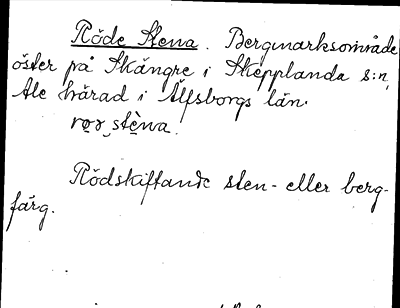 Röde Stena. Bergmarksområde
öster på Skängre i Skepplanda s:n,
Ale härad i Älfsborgs län.
Rödskiftande sten- eller berg-
färg.